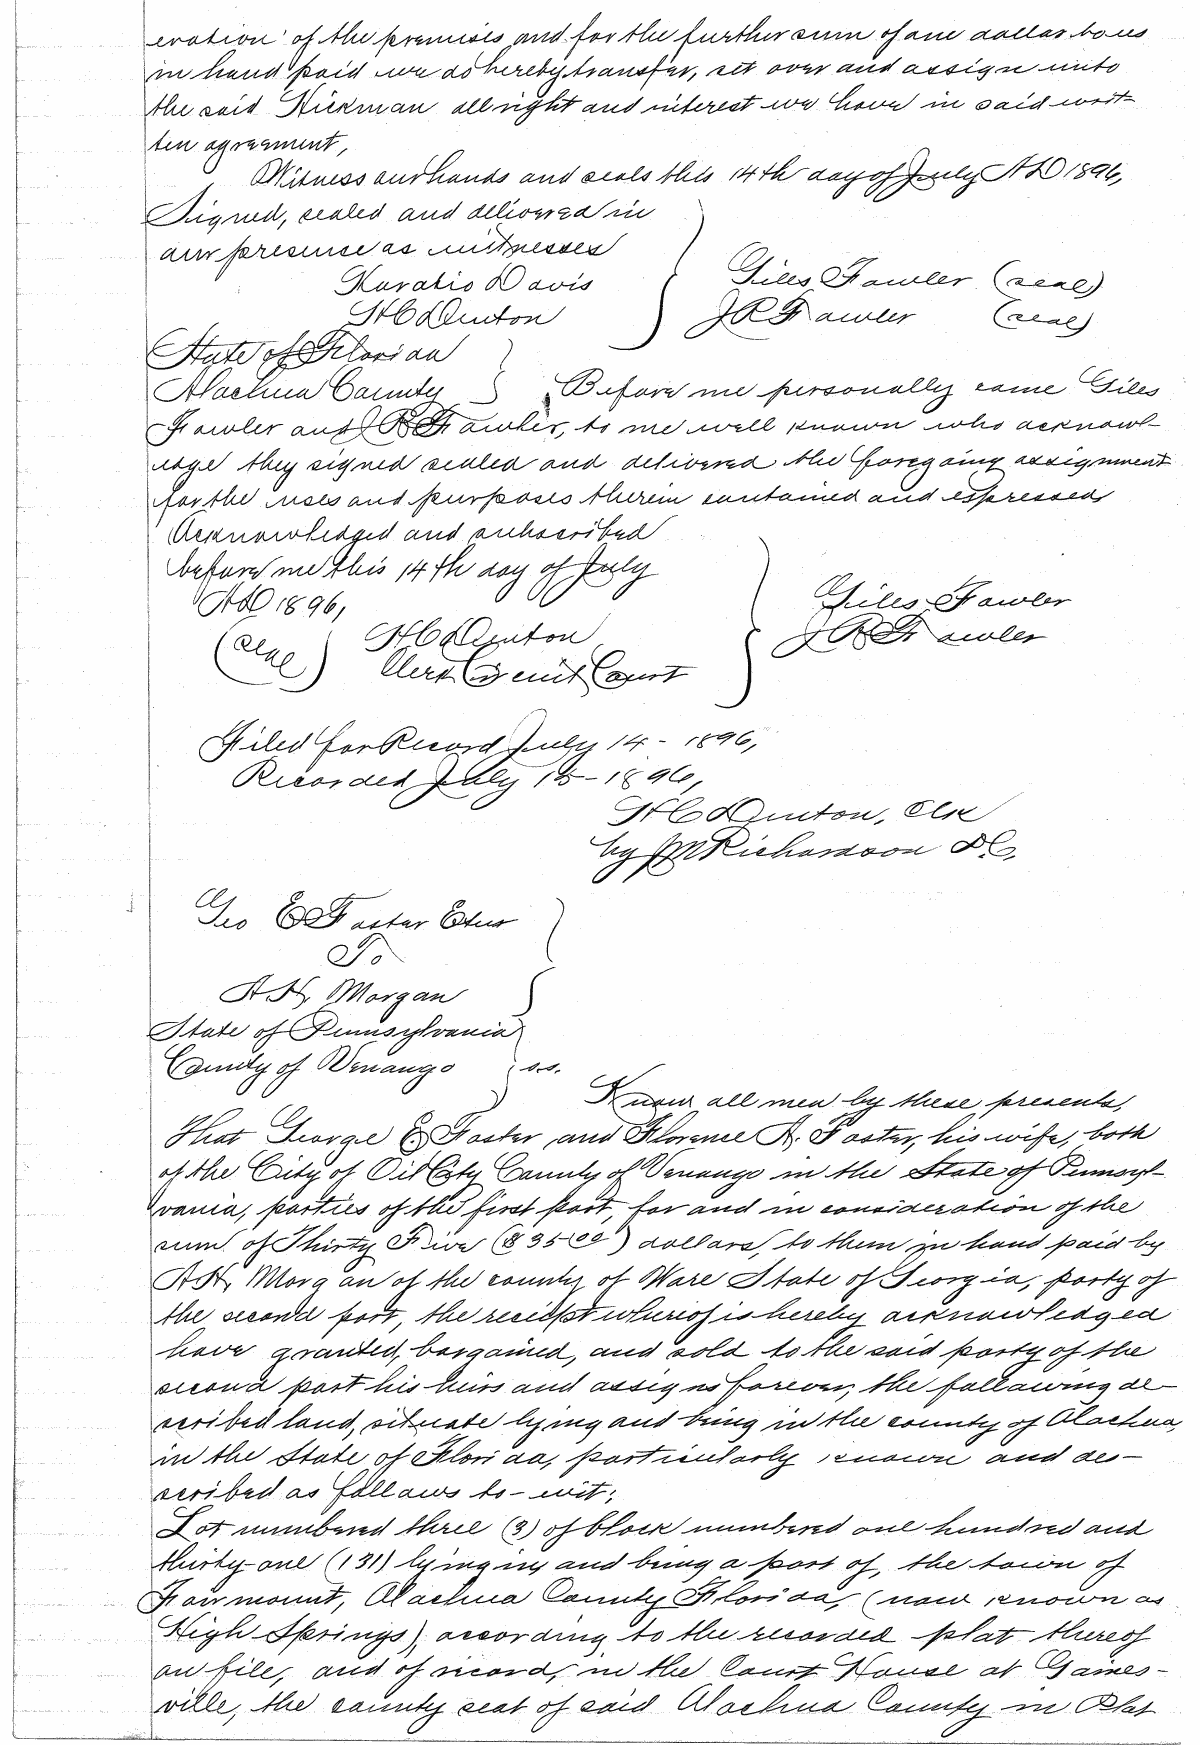 eration of the premises and for the further sum of one dollar to us
in hand paid we do hereby transfer, set over and assign unto
the said Hickman all right and interest we have in said writ-
ten agreement,
Witness our hands and seals this 14th day of July AD 1896,
Signed, sealed and delivered in
our presence as witnesses
Horatio Davis
Giles Fowler (seal)
H C Denton
J R Fowler (seal)
State of Florida
Alachua County
Before me personally came Giles
Fowler and J R Fowler, to me well known who acknowl-
edge they signed sealed and delivered the foregoing assignment
for the uses and purposes therein contained and expressed
Acknowledged and subscribed
before me this 14th day of July
AD 1896,
Giles Fowler
(seal)
H C Denton
J R Fowler
Clerk Circuit Court
Filed for Record July 14 - 1896,
Recorded July 15 - 1896,
H C Denton, Clk
by J M Richardson D C,
Geo E Foster Etux
To
A H, Morgan
State of Pennsylvania
County of Venango s.s.
Know all men by these presents,
That George E Foster and Florence A. Foster, his wife, both
of the City of Oil City County of Venango in the State of Pennsyl-
vania, parties of the first part, for and in consideration of the
sum of Thirty Five ($35 00) dollars, to them in hand paid by
A H, Morgan of the county of Ware State of Georgia, party of
the second part, the receipt whereof is hereby acknowledged
have granted, bargained, and sold to the said party of the
second part his heirs and assigns forever, the following de-
scribed land, situate lying and being in the county of Alachua,
in the State of Florida, particularly known and des-
scribed as follows to-wit;
Lot numbered three (3) of block numbered one hundred and
thirty-one (131) lying in and being a part of, the town of
Fairmount, Alachua County Florida, (now known as
High Springs) according to the recorded plat thereof
on file, and of record, in the Court House at Gaines-
ville, the county seat of said Alachua County in Plat